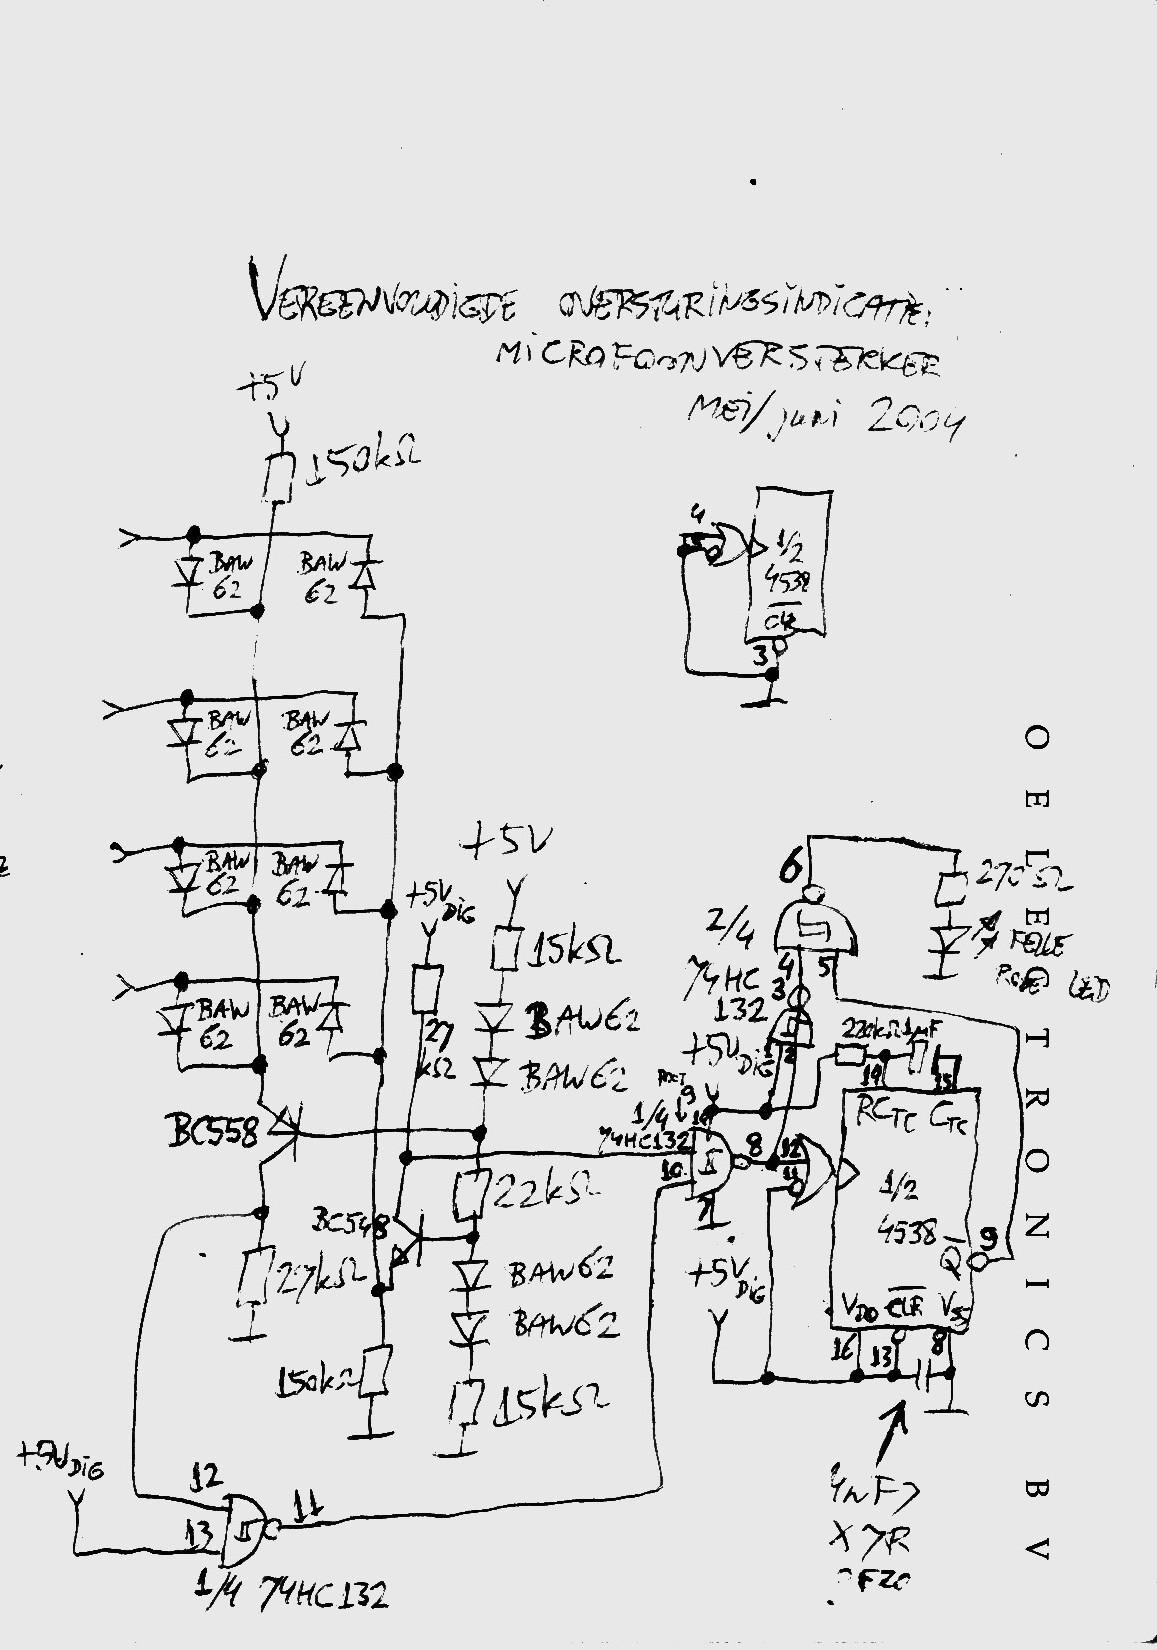 VEREENVOUDIGDE OVERSTURINGSINDICATIE:
MICROFOONVERSTERKER
MEI/juni 2004
+5V
150kΩ
BAW 62
BAW 62
4
5
1/2
4538
CLR
3
BAW 62
BAW 62
+5V
BAW 62
BAW 62
+5V DIG
15kΩ
6
270Ω
FELLE
RODE LED
2/4
74HC
132
4
5
3
1
2
BAW 62
BAW 62
27
kΩ
BAW62
BAW62
+5V DIG
220kΩ
1µF
14
15
RCTC CTC
BC558
1/4
74HC132
9
14
10
8
7
12
11
1/2
4538
Q
9
22kΩ
BC548
27kΩ
BAW62
BAW62
+5V DIG
VDD CLR VSS
16
13
8
150kΩ
15kΩ
+5V DIG
12
13
11
1/4 74HC132
4n7
X7R
OELECTRONICS BV